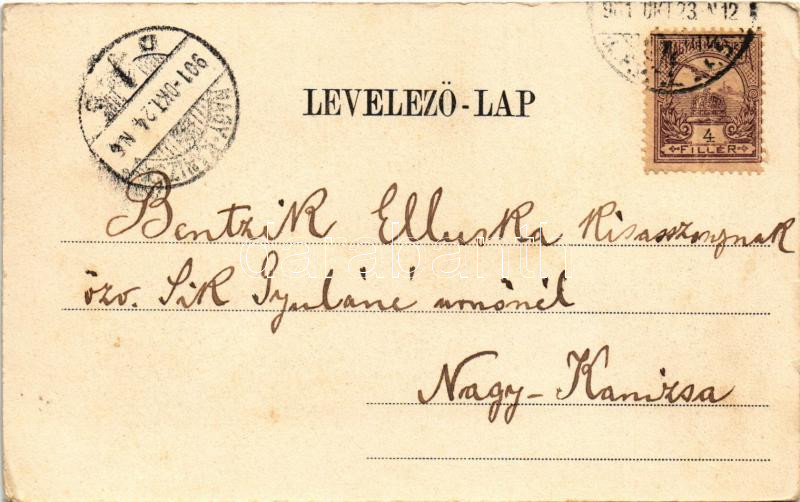 901 OKT.23. N12
MAGYAR
4
FILLÉR
901-OKT.24. N6
NAGY-KANIZSA
LEVELEZŐ-LAP
Bentzik Elluska Kisasszonynak
özv. Sik Gyuláné urnőnél
Nagy-Kanizsa
darabanth